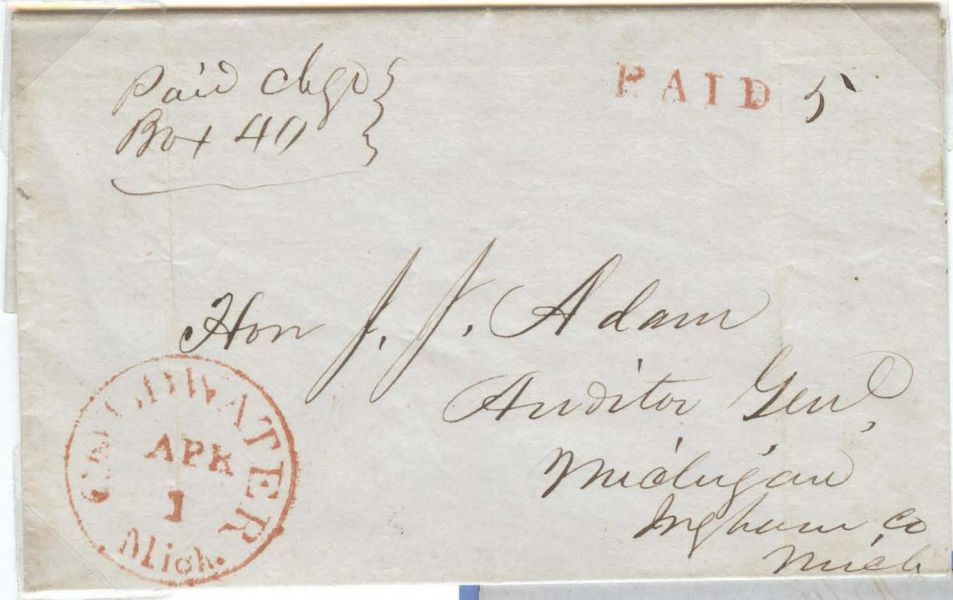 Paid chgd
Box 40
PAID 5
Hon J. J. Adam
Auditor Genl,
Michigan
Ingham Co
Mich
COLDWATER
APR
1
Mich.